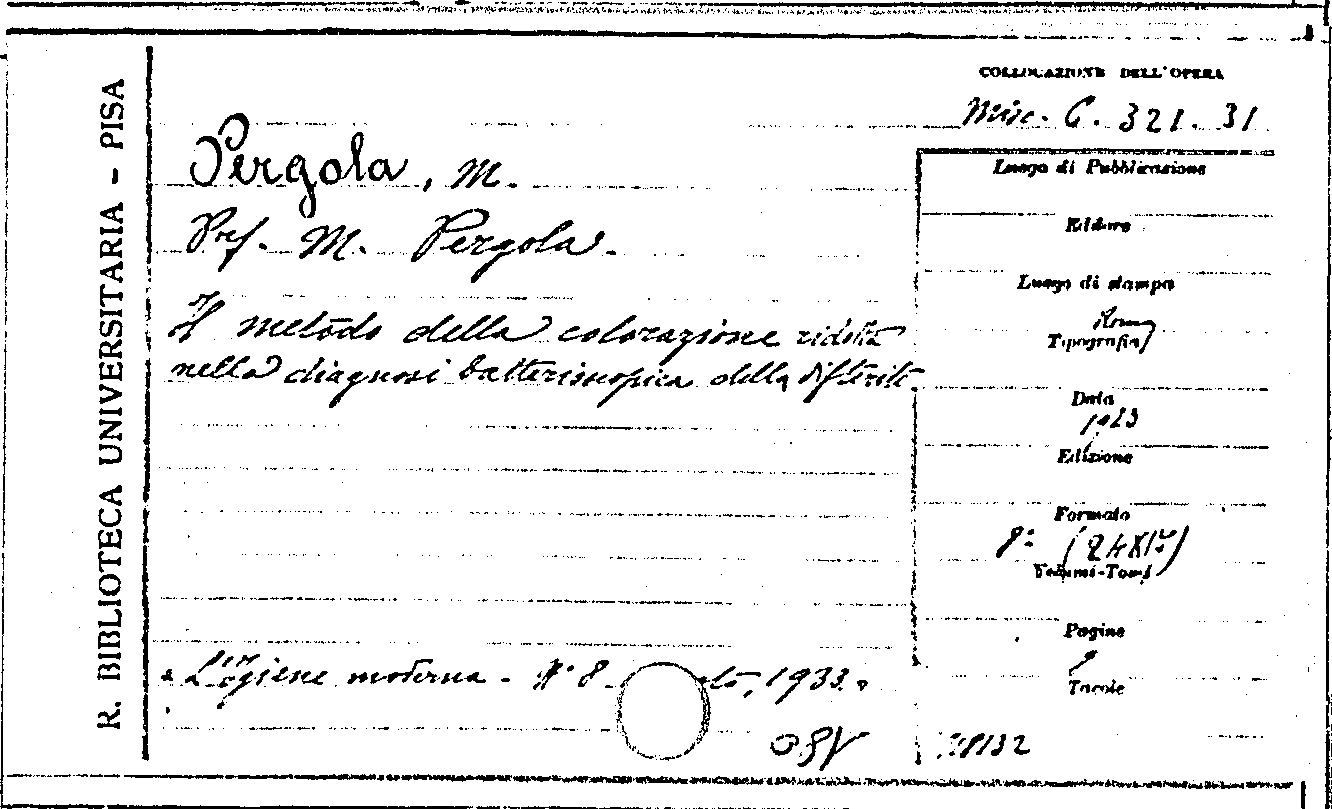 R. BIBLIOTECA UNIVERSITARIA - PISA
COLLOCAZIONE DELL'OPERA
Misc. C. 321. 31
Pergola, M.
Prof. M. Pergola.
Il metodo della colorazione ridotta
nella diagnosi batterioscopica della difterite
"L'Igiene moderna - N° 8 1933"
Luogo di Pubblicazione
Editore
Luogo di stampa
Roma
Tipografia
Data
Edizione
Formato
8°
Volumi-Tomi
Pagine
Tavole